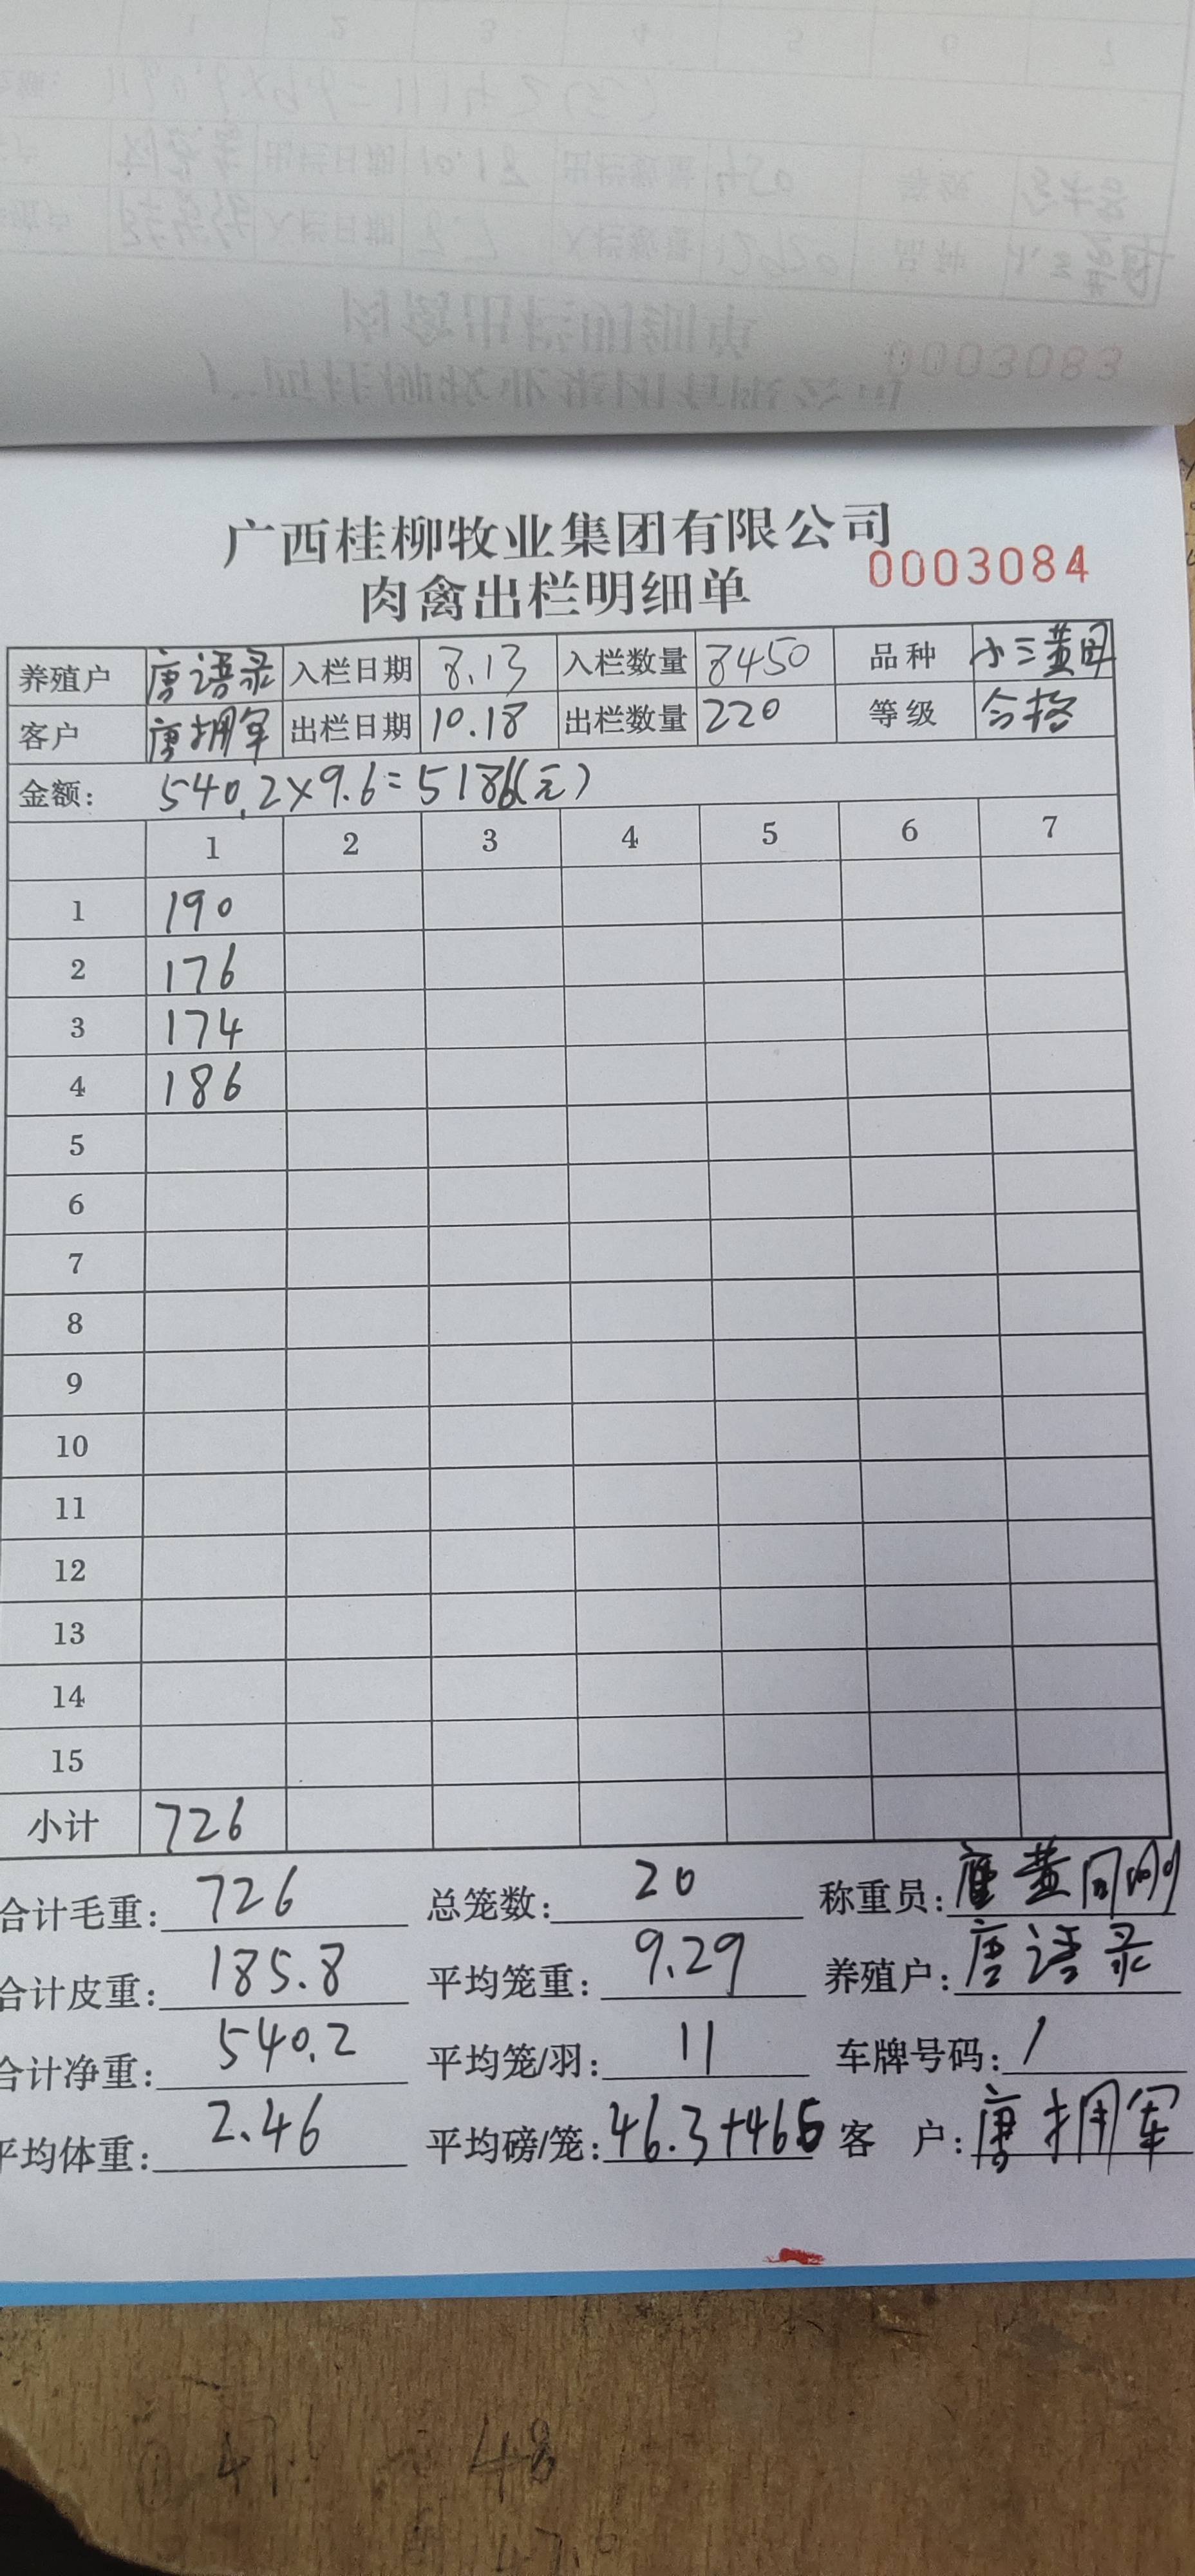 0003083
广西桂柳牧业集团有限公司
肉禽出栏明细单
0003084
养殖户 唐语录 入栏日期 8.13 入栏数量 8450 品种 小三黄
客户 唐拥军 出栏日期 10.18 出栏数量 220 等级 合格
金额: 540.2×9.6=5186(元)
1 2 3 4 5 6 7
1 190
2 176
3 174
4 186
5
6
7
8
9
10
11
12
13
14
15
小计 726
合计毛重: 726 总笼数: 20 称重员:
合计皮重: 185.8 平均笼重: 9.29 养殖户: 唐语录
合计净重: 540.2 平均笼/羽: 11 车牌号码: /
平均体重: 2.46 平均磅/笼: 46.3+465 客 户: 唐拥军
48